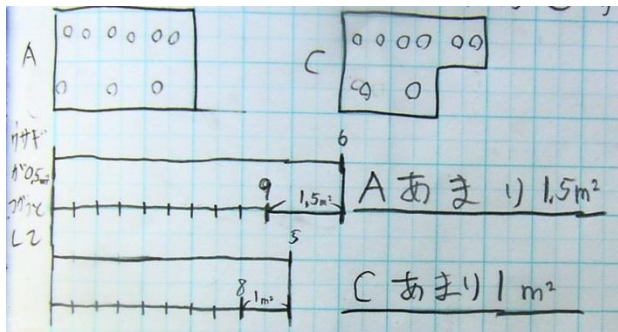 A
C
ウサギ
が0.5m²
づつと
して
6
9
1,5m²
A あまり 1.5m²
5
8
1m²
C あまり 1m²